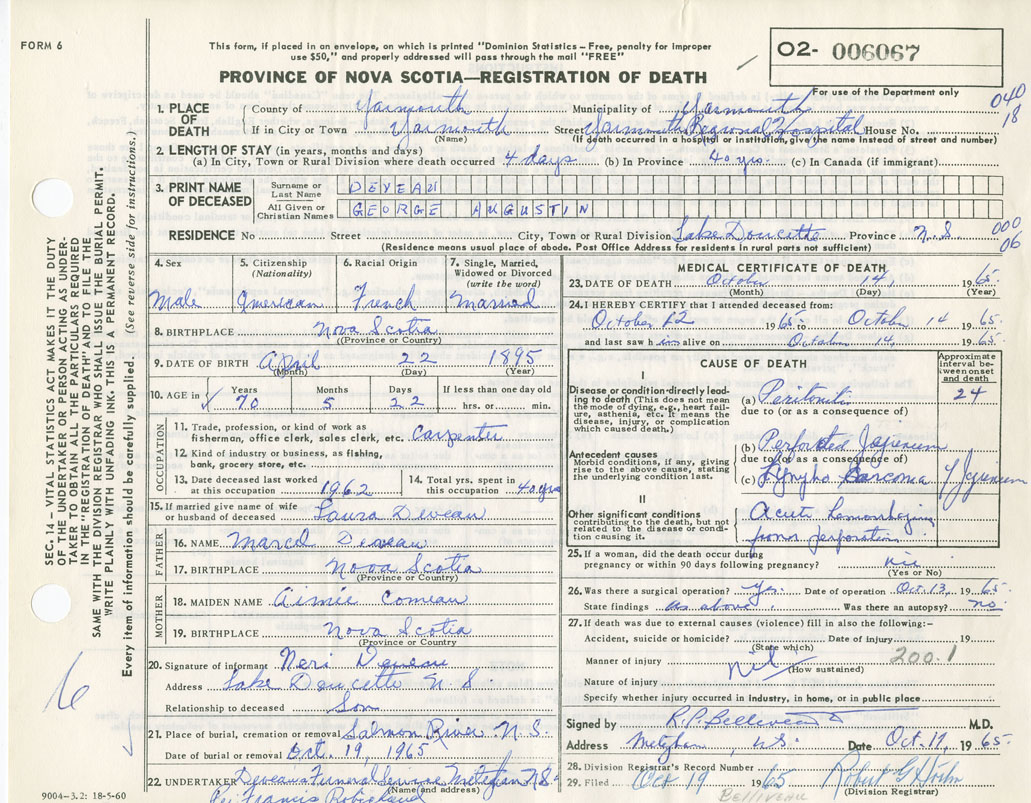 FORM 6
This form, if placed in an envelope, on which is printed "Dominion Statistics – Free, penalty for improper
use $50," and properly addressed will pass through the mail "FREE"
O2- 006067
PROVINCE OF NOVA SCOTIA—REGISTRATION OF DEATH
For use of the Department only
040
18
1. PLACE OF DEATH
County of Yarmouth Municipality of Yarmouth
If in City or Town Yarmouth Street Yarmouth Regional Hospital House No.
(Name) (If death occurred in a hospital or institution, given the name instead of street and number)
2. LENGTH OF STAY (in years, months and days)
(a) In City, Town or Rural Division where death occurred 4 days (b) In Province 40 yrs. (c) In Canada (if immigrant)
3. PRINT NAME OF DECEASED
Surname or Last Name DEVEAU
All Given or Christian Names GEORGE AUGUSTIN
RESIDENCE No Street City, Town or Rural Division Lake Doucette Province N.S.
000
06
(Residence means usual place of abode. Post Office Address for residents in rural parts not sufficient)
4. Sex Male
5. Citizenship (Nationality) American
6. Racial Origin French
7. Single, Married, Widowed or Divorced (write the word) Married
8. BIRTHPLACE Nova Scotia
(Province or Country)
9. DATE OF BIRTH April 22 1895
(Month) (Day) (Year)
10. AGE in Years 70 Months 5 Days 22 If less than one day old hrs. or min.
OCCUPATION
11. Trade, profession, or kind of work as
fisherman, office clerk, sales clerk, etc. Carpenter
12. Kind of industry or business, as fishing,
bank, grocery store, etc.
13. Date deceased last worked at this occupation 1962
14. Total yrs. spent in this occupation 40 yrs
15. If married give name of wife or husband of deceased Laura Deveau
FATHER
16. NAME Marcel Deveau
17. BIRTHPLACE Nova Scotia
(Province or Country)
MOTHER
18. MAIDEN NAME Aimie Comeau
19. BIRTHPLACE Nova Scotia
(Province or Country)
20. Signature of informant Neri Deveau
Address Lake Doucette N.S
Relationship to deceased Son
21. Place of burial, cremation or removal Salmon River N.S.
Date of burial or removal Oct. 19, 1965
22. UNDERTAKER Deveau Funeral Service Meteghan N.S.
(Name and address)
Per Francis Robichaud
9004-3.2: 18-5-60
MEDICAL CERTIFICATE OF DEATH
23. DATE OF DEATH October 14, 1965
(Month) (Day) (Year)
24. I HEREBY CERTIFY that I attended deceased from:
October 12 1965 to October 14 1965
and last saw him alive on October 14, 1965.
CAUSE OF DEATH
Approximate interval between onset and death
I
Disease or conditon directly leading to death (This does not mean the mode of dying, e.g., heart failure, asthenia, etc. It means the disease, injury, or complication which caused death.)
(a) Peritonitis 24
due to (or as a consequence of)
Antecedent causes
Morbid conditions, if any, giving rise to the above cause, stating the underlying condition last.
(b) Perforated Jejunum
due to (or as a consequence of)
(c) Lympho Sarcoma Jejunum
II
Other significant conditions contributing to the death, but not related to the disease or condition causing it.
Acute hemorrhaging
from perforation
25. If a woman, did the death occur during
pregnancy or within 90 days following pregnancy? nil
(Yes or No)
26. Was there a surgical operation? Yes. Date of operation Oct 13, 1965
State findings as above. Was there an autopsy? no
27. If death was due to external causes (violence) fill in also the following:-
Accident, suicide or homicide? Date of injury 19
(State which)
Manner of injury nil 200.1
(How sustained)
Nature of injury
Specify whether injury occurred in industry, in home, or in public place
Signed by R.P. Belliveau M.D.
Address Meteghan, N.S. Date Oct. 17, 1965.
28. Division Registrar's Record Number
29. Filed Oct 19 1965
(Division Registrar)
BELLIVEAU
SEC. 14 – VITAL STATISTICS ACT MAKES IT THE DUTY
OF THE UNDERTAKER OR PERSON ACTING AS UNDER-
TAKER TO OBTAIN ALL THE PARTICULARS REQUIRED
IN THE "REGISTRATION OF DEATH" AND TO FILE THE
SAME WITH THE DIVISION REGISTRAR WHO SHALL ISSUE THE BURIAL PERMIT.
WRITE PLAINLY WITH UNFADING INK. THIS IS A PERMANENT RECORD.
Every item of information should be carefully supplied. (See reverse side for instructions.)